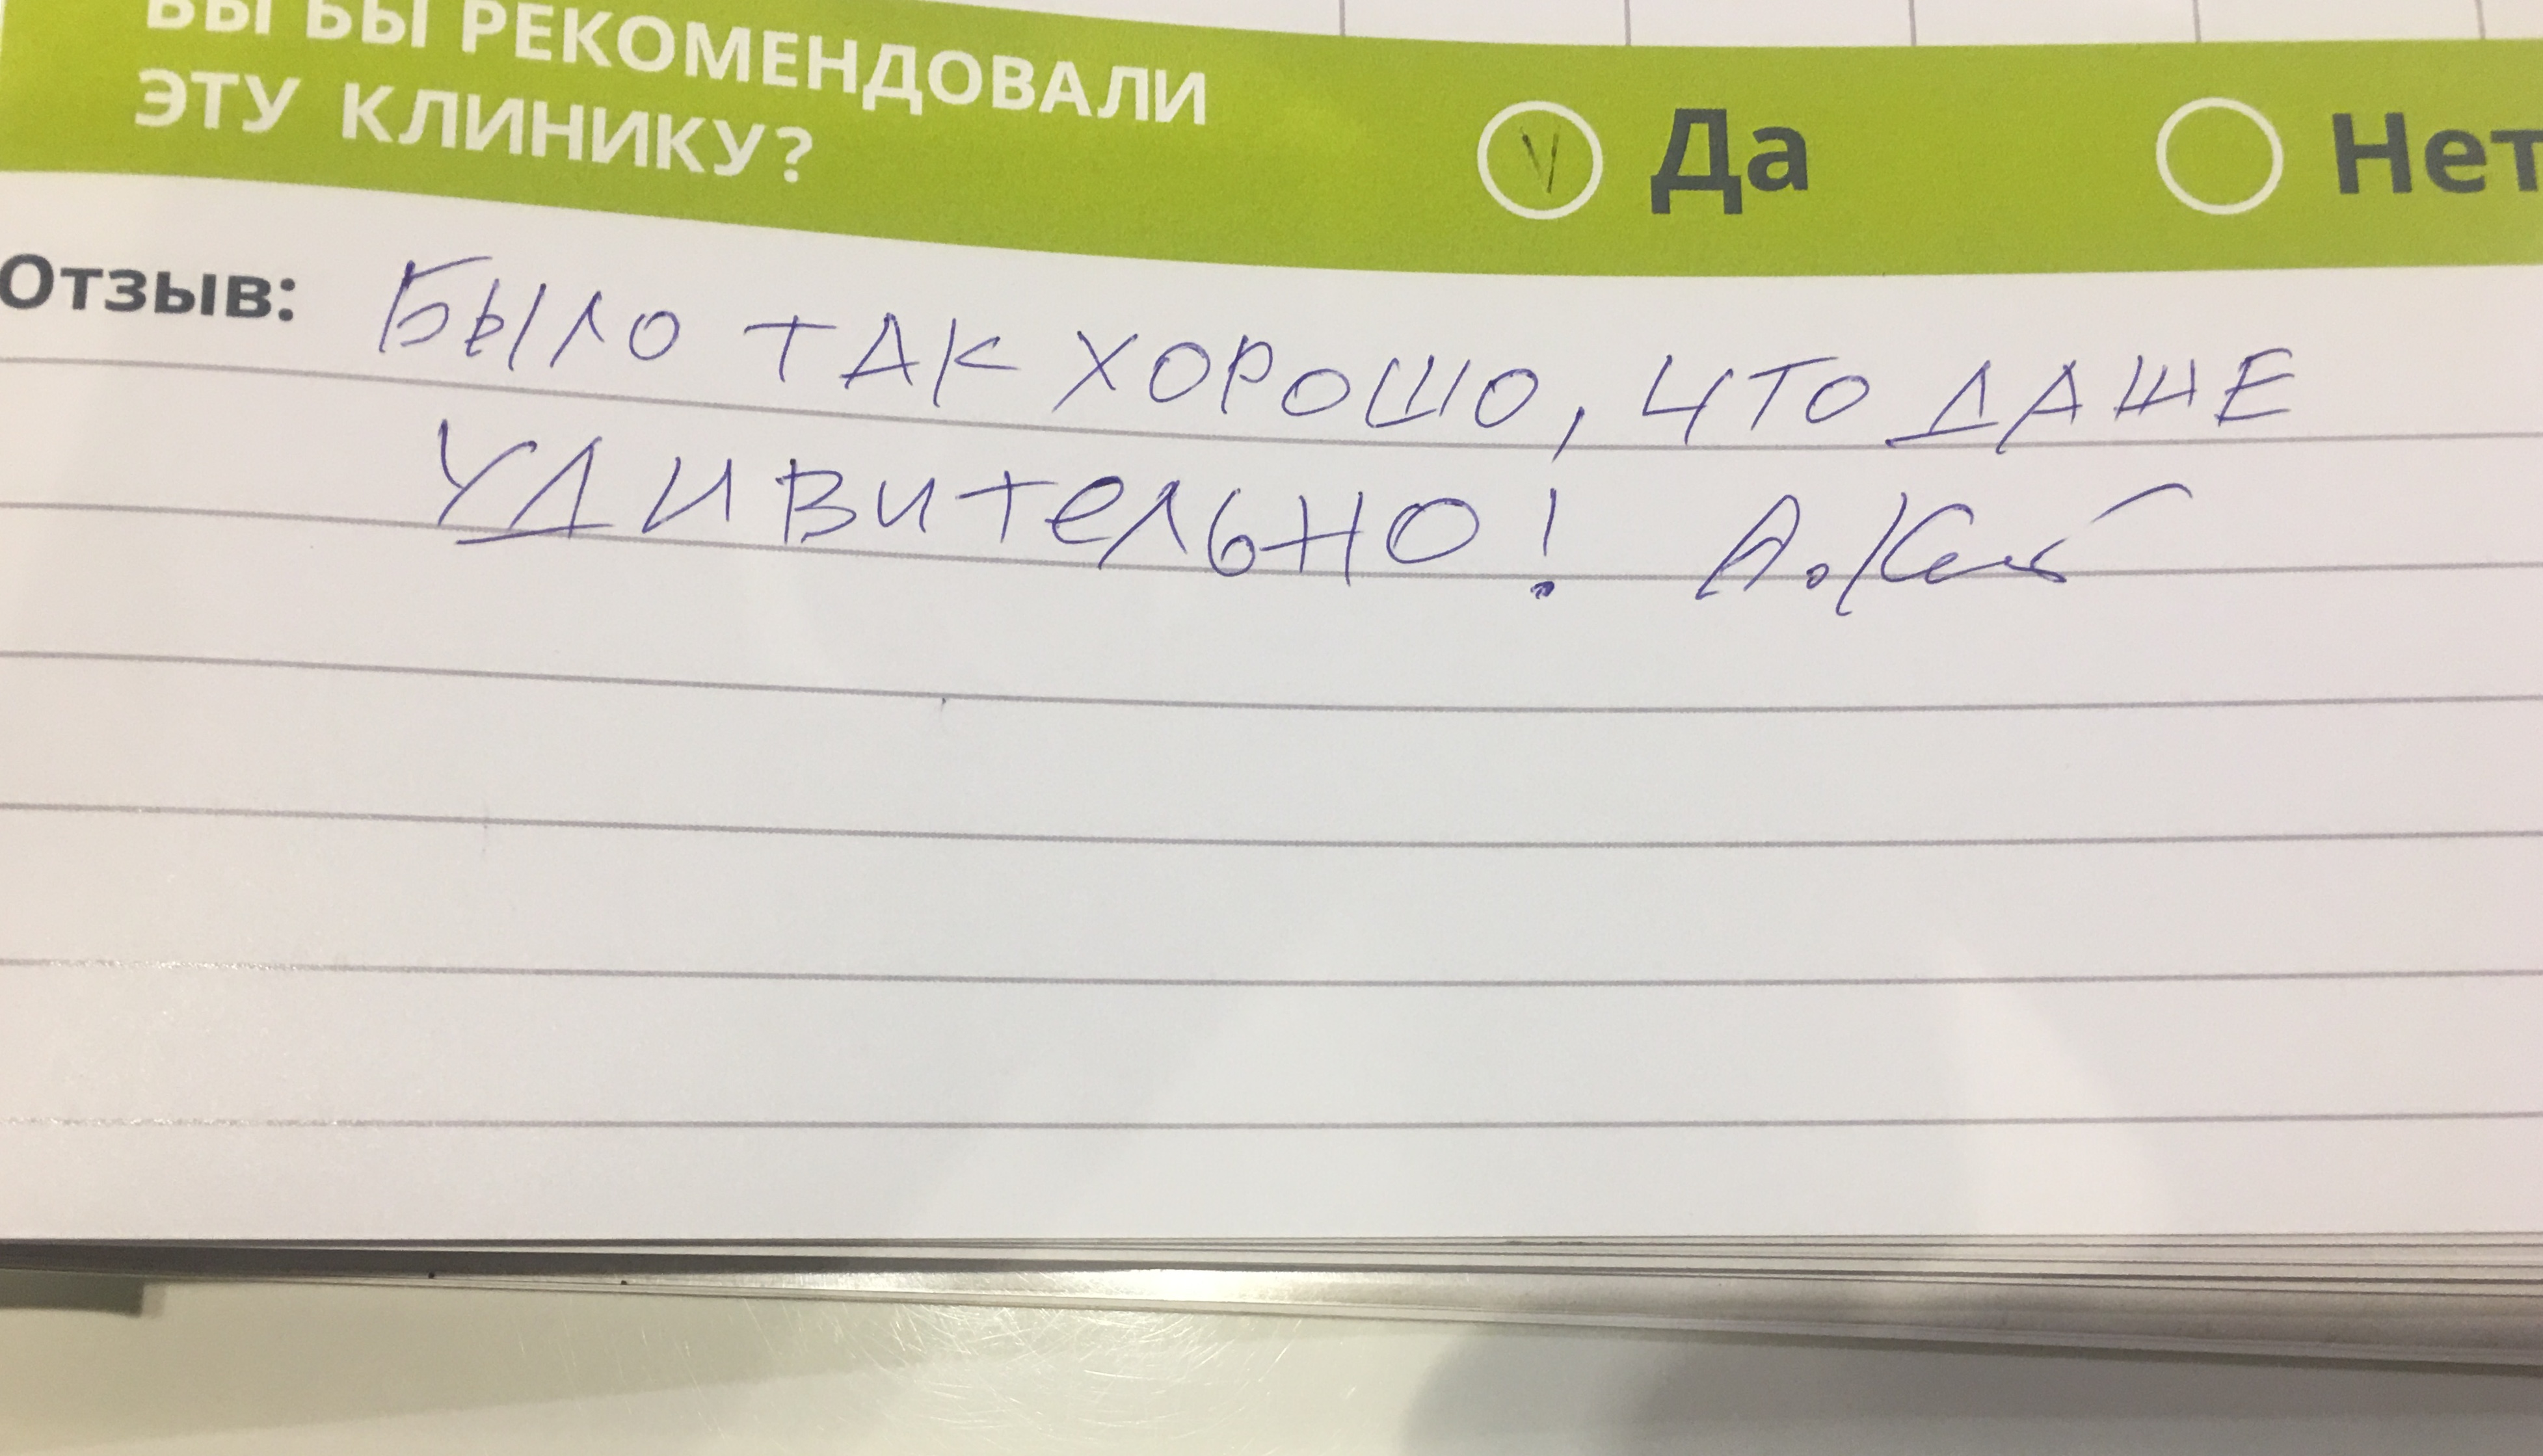 ВЫ БЫ РЕКОМЕНДОВАЛИ
ЭТУ КЛИНИКУ?
V Да
Нет
Отзыв: БЫЛО ТАК ХОРОШО, ЧТО ДАЖЕ
УДИВИТЕЛЬНО!